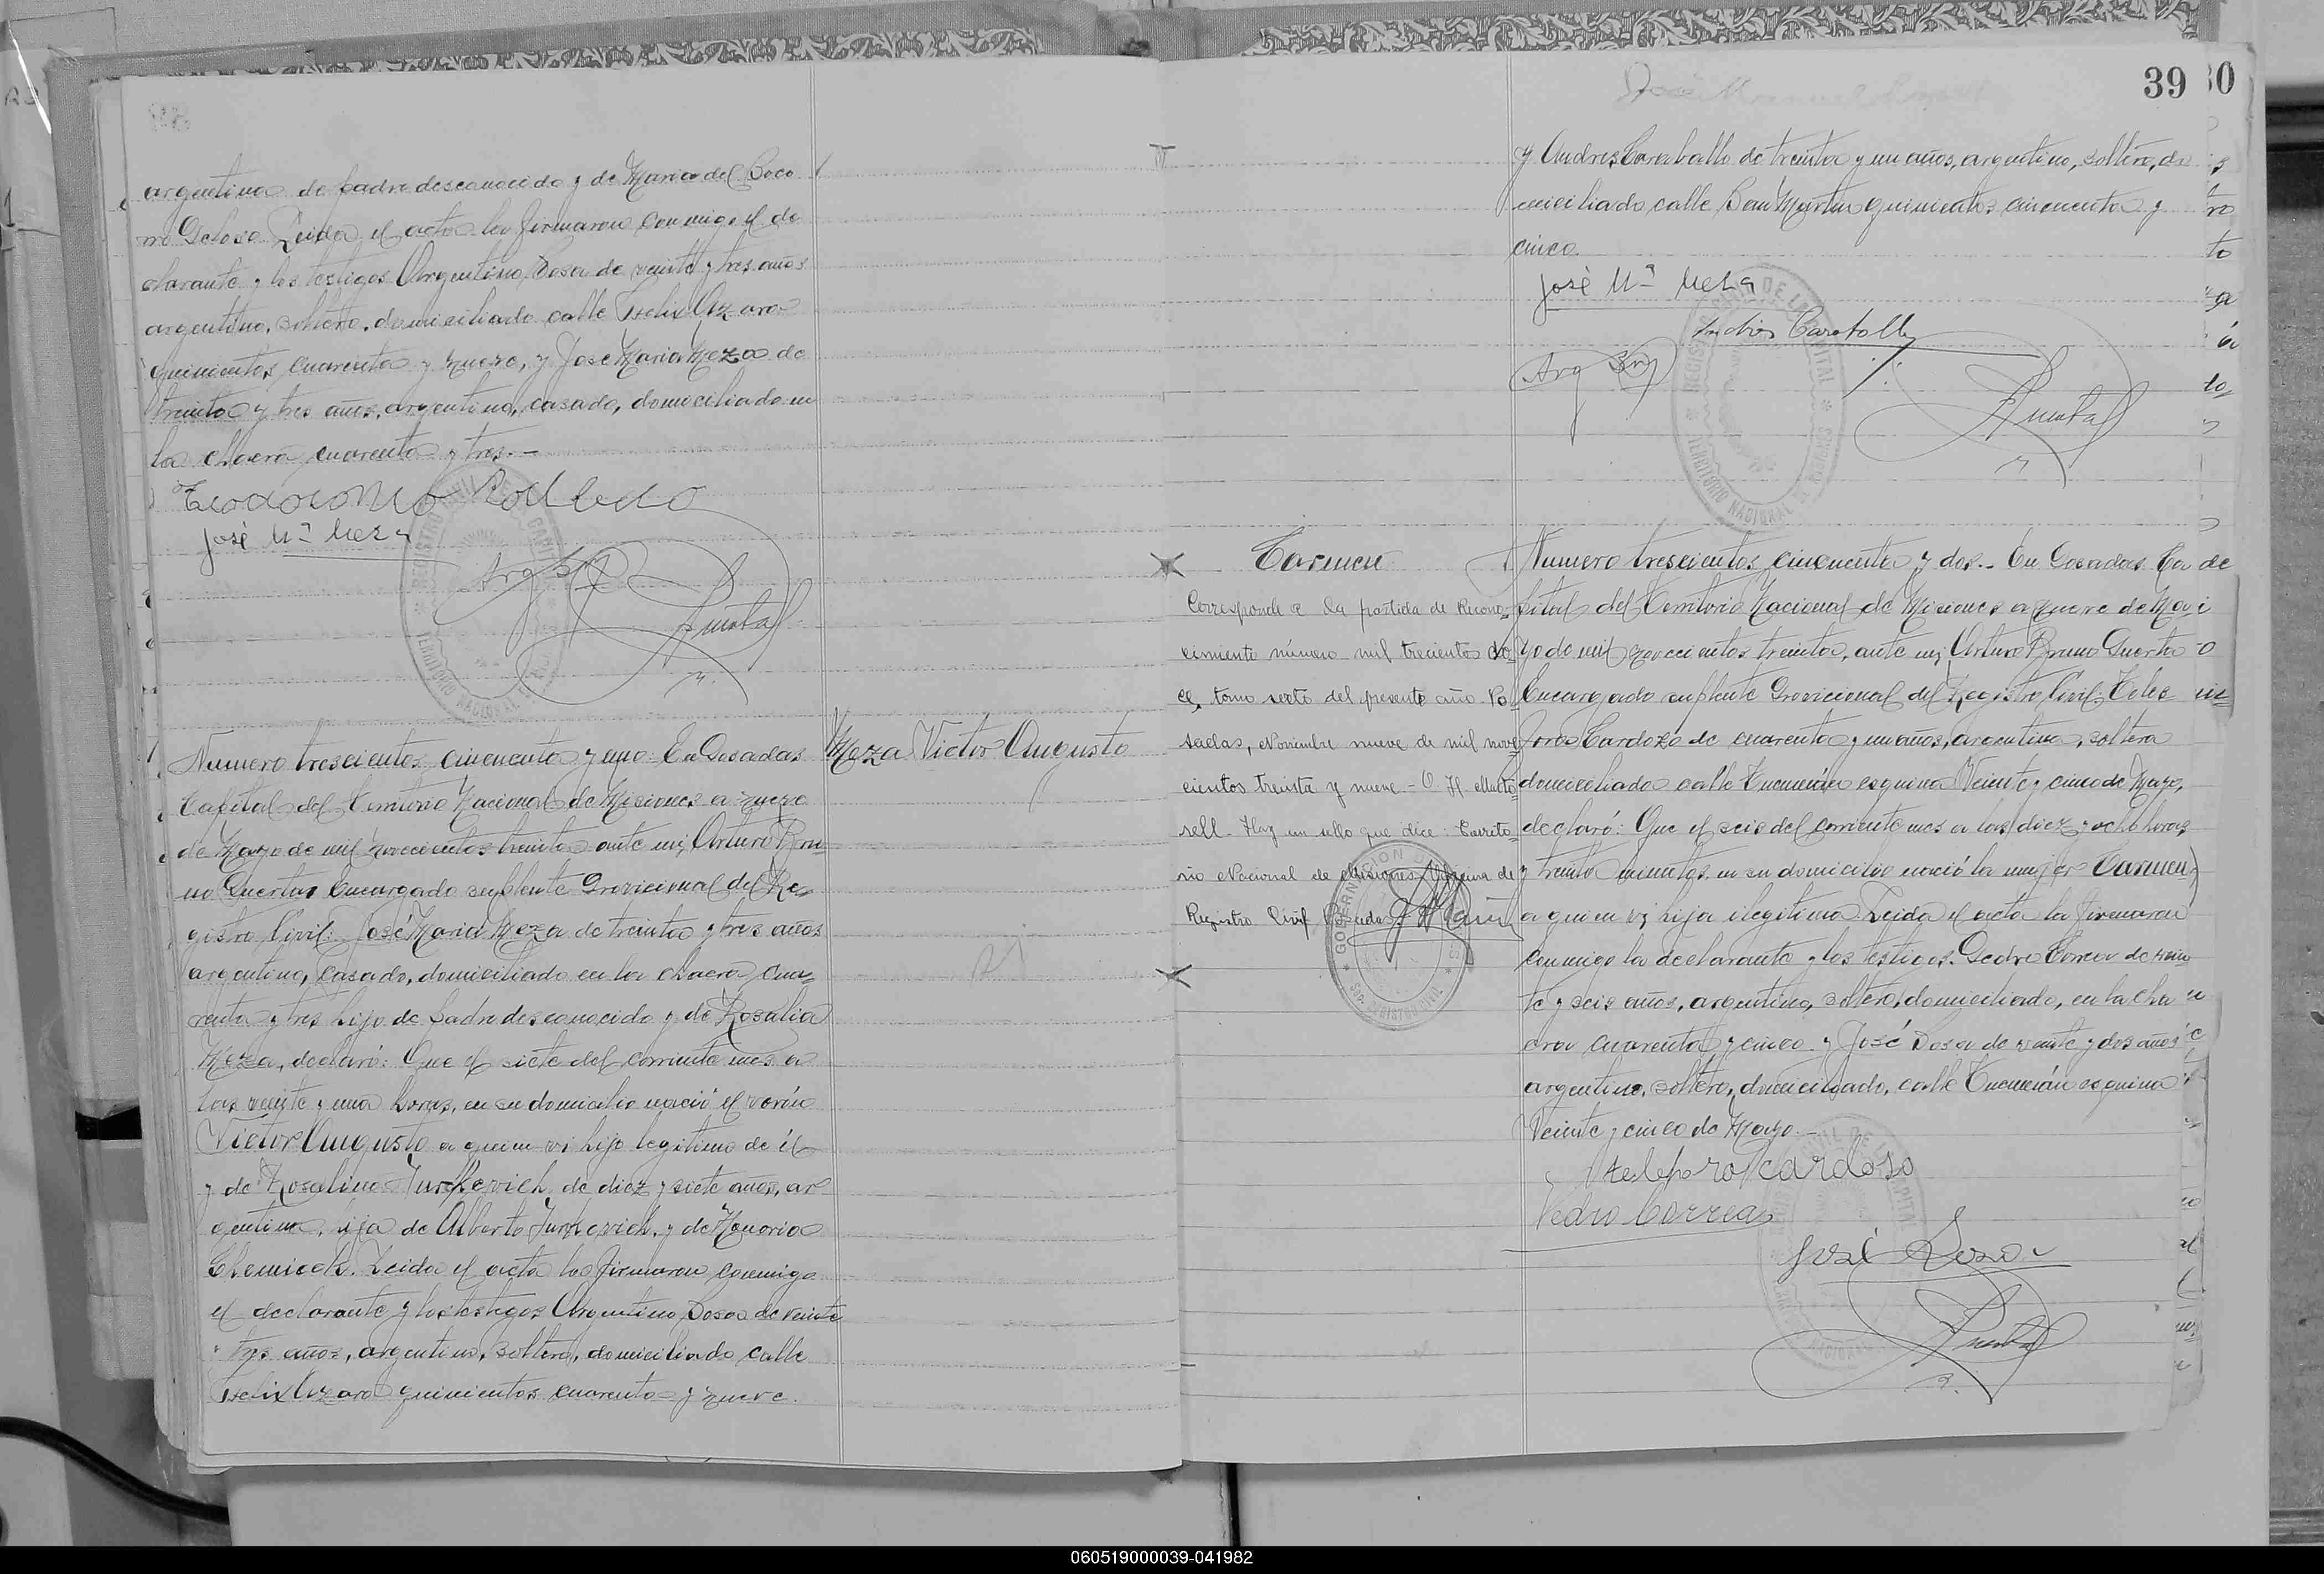 argentina de padre desconocido y de Maria del Soco
rro Geloso. Leida el acta la firmaron conmigo el de
clarante y los testigos Argentino Sosa de veinte y tres años
argentino, soltero, domiciliado calle Felix Azara
quinientos cuarenta y nueve, y José Maria Meza de
treinta y tres años, argentino, casado, domiciliado en
la chacra cuarenta y tres.-
José Mª Meza
Numero trescientos cincuenta y uno. En Posadas
Capital del Territorio Nacional de Misiones a nueve
de Mayo de mil novecientos treinta ante mi, Arturo Bru
no Puertas Encargado suplente Provicional del Re-
gistro Civil: José Maria Meza de treinta y tres años
argentino, casado, domiciliado en la chacra cua-
renta y tres hijo de padre desconocido y de Rosalia
Meza, declaró: Que el siete del corriente mes a
las veinte y una horas, en su domicilio nació el varón
Victor Augusto a quien vi hijo legitimo de él
y de Rosalina Jurkevich, de diez y siete años, ar
gentina, hija de Alberto Jurkevich, y de
Leida el acta la firmaron conmigo
el declarante y los testigos Argentino Sosa de veinte
tres años, argentino, soltero, domiciliado calle
Felix Azara quinientos cuarenta y nueve.
Meza Victor Augusto
39
y Andres Caraballo de treinta y un años, argentino, soltero, do
miciliado calle San Martin quinientos cincuenta y
cinco.
José Mª Meza
Carmen
Corresponde a la partida de Recono-
cimiento número mil trecientos do
ce, tomo sexto del presente año. Po-
sadas, Noviembre nueve de mil nove
cientos treinta y nueve - O H Marto
rell - Hay un sello que dice: Territo-
rio Nacional de Misiones Oficina de
Registro Civil Posadas
Numero trescientos cincuenta y dos.- En Posadas Ca
pital del Territorio Nacional de Misiones a nueve de Ma
yo de mil novecientos treinta, ante mi, Arturo Bruno Puertas
Encargado suplente Provicional del Registro Civil. Teles
fora Cardozo de cuarenta y un años, argentina, soltera
domiciliada calle Tucumán esquina Veinte y cinco de Mayo,
declaró: Que el seis del corriente mes a las diez y ocho horas
y treinta minutos, en su domicilio nació la mujer Carmen,
a quien vi, hija ilegitima. Leida el acta la firmaron
conmigo la declarante y los testigos. Pedro Correa de vein
te y seis años, argentino, soltero, domiciliado, en la cha
cra cuarenta y cinco y José Sosa de veinte y dos años
argentino, soltero, domiciliado, calle Tucumán esquina
Veinte y cinco de Mayo.-
telefora Cardoso
Pedro Correa
José Sosa
060519000039-041982